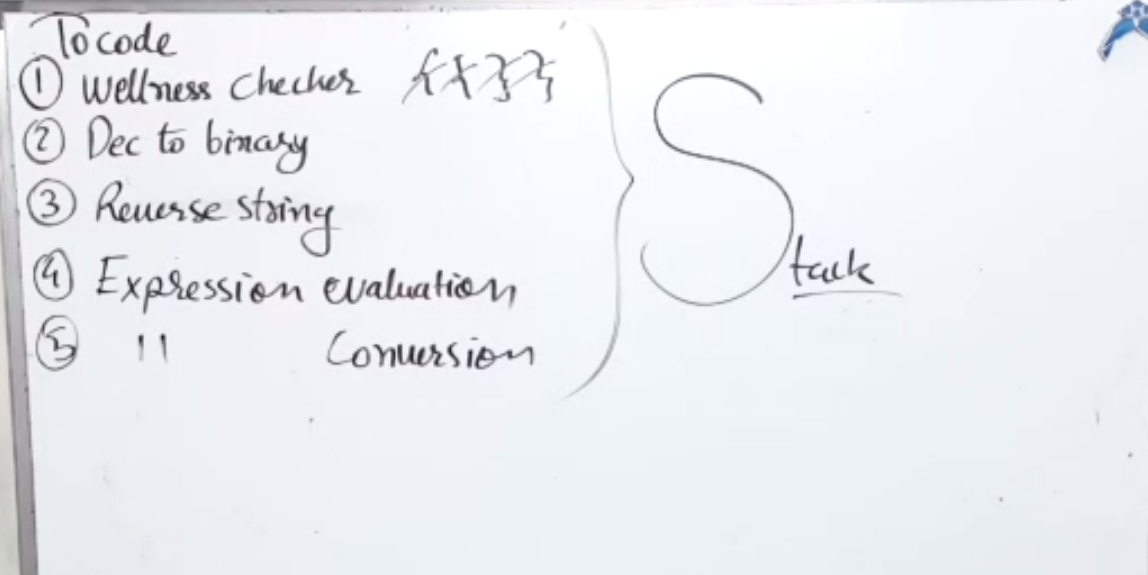 To code
① Wellness checker { { } }
② Dec to binary
③ Reverse string
④ Expression evaluation
⑤ " Conversion
Stack